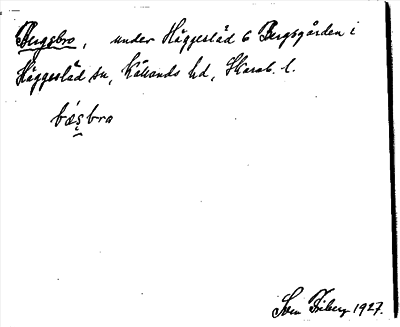 Bergsbro, under Häggesläd 6 Bergsgården i
Häggesläd sn, Kållands hd, Skarab. l.
bæ̀s̨bra
Sven Friberg 1927.